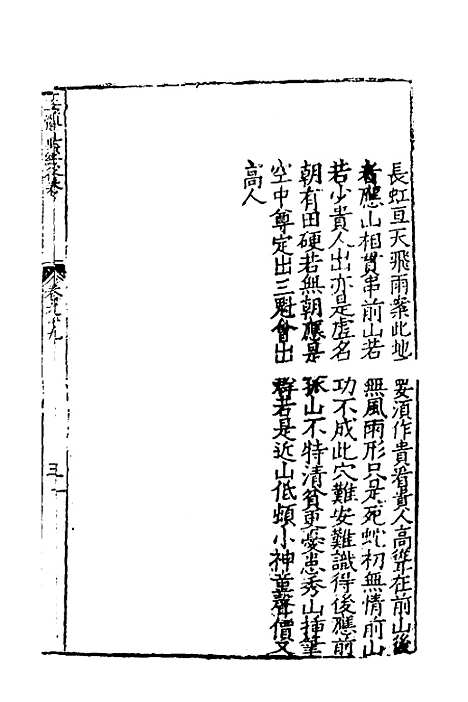 長虹亘天飛雨案此地要湏作貴看貴人高聳在前山後
者應山相貫串前山若無風雨形只是死蛇初無情前山
若少貴人出亦是虛名功不成此穴難安難識得後應前
朝有田硬若無朝應是孤山不特清貧更憂患秀山挿筆
空中尊定出三魁會出群若是近山低頻小神童聲價又
高人